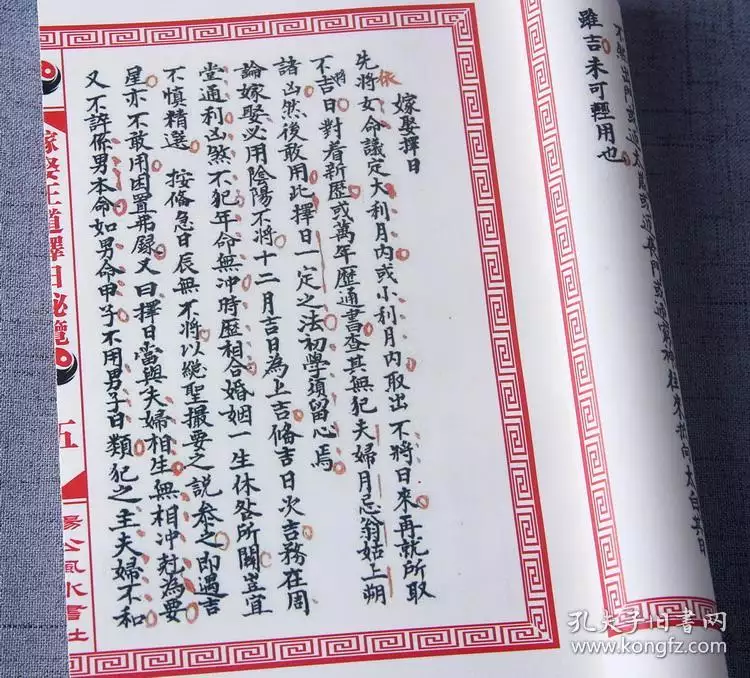 雖吉未可輕用也
嫁娶擇日
依
先將女命議定大利月內或小利月內取出不將日來再就所取
將
不吉日對看新歷或萬年歷通書查其無犯夫婦月忌翁姑上朔
諸凶然後敢用此擇日一定之法初學須留心焉
論嫁娶必用陰陽不將十二月吉日為上吉俻吉日次吉務在周
堂通利凶煞不犯年命無冲時歷相合婚姻一生休咎所關豈宜
不慎精選 按俻急日辰無不將以總聖撮要之說參之即遇吉
星亦不敢用因置弗録又曰擇日當與夫婦相生無相冲尅為要
又不許係男本命如男命甲子不用男子日類犯之主夫婦不和
嫁娶王道擇日秘覽
五
楊公風水書社
孔夫子旧書网
www.kongfz.com